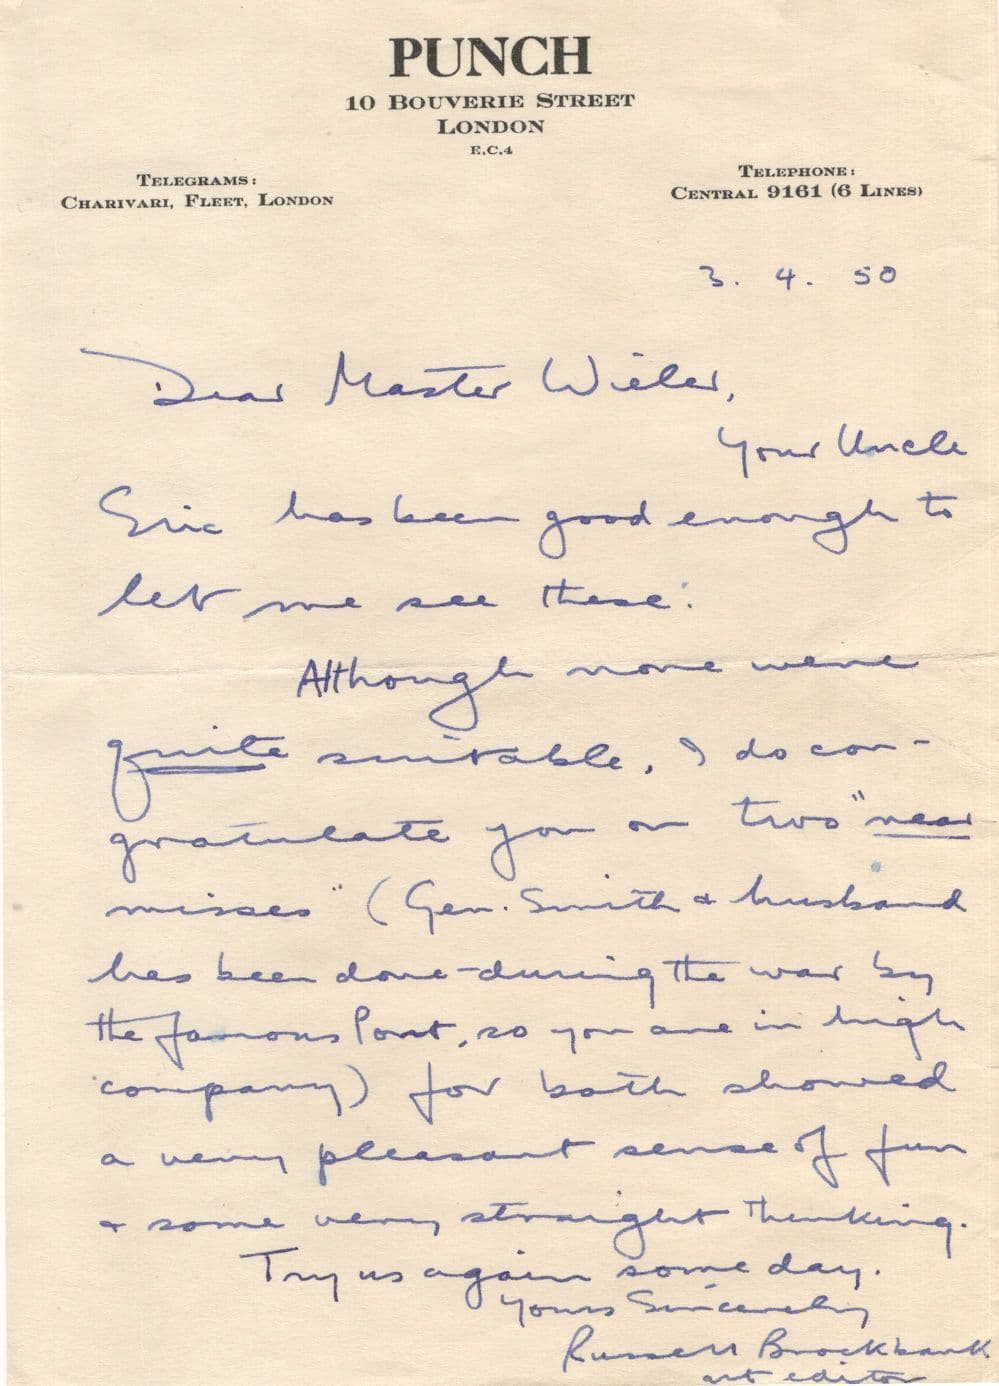 PUNCH
10 BOUVERIE STREET
LONDON
E.C.4
TELEGRAMS:
CHARIVARI, FLEET, LONDON
TELEPHONE:
CENTRAL 9161 (6 LINES)
3. 4. 50
Dear Master Wieler,
Your Uncle
Eric has been good enough to
let me see these:
Although none were
quite suitable, I do con-
gratulate you on two "near
misses" (Gen. Smith & husband
has been done - during the war by
the famous Pont, so you are in high
company) for both showed
a very pleasant sense of fun
& some very straight thinking.
Try us again some day.
Yours Sincerely
Russell Brockbank
art editor